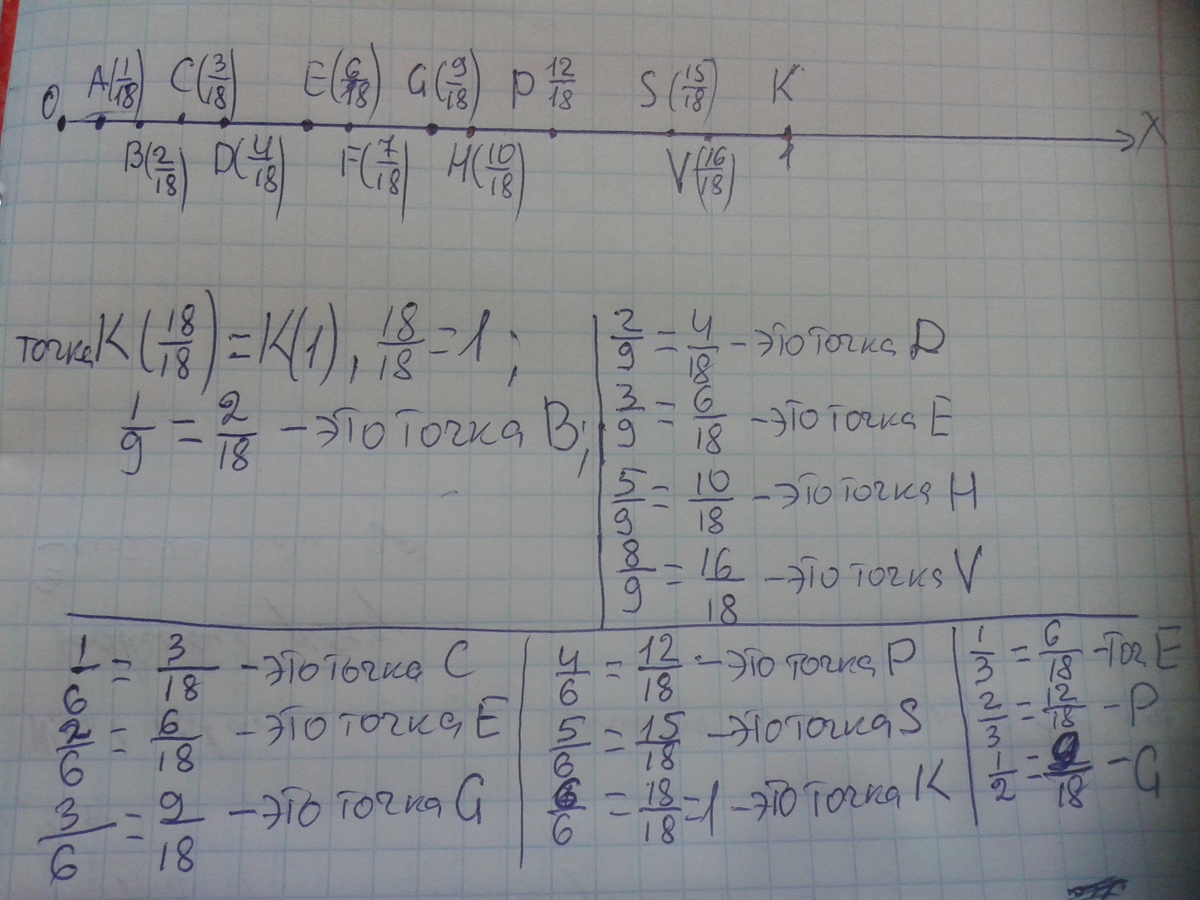 O A(1/18) C(3/18) E(6/18) G(9/18) P 12/18 S(15/18) K
B(2/18) D(4/18) F(7/18) H(10/18) V(16/18) 1 X
точка K(18/18)=K(1), 18/18=1;
1/9 = 2/18 - это точка B;
2/9 = 4/18 - это точка D
3/9 = 6/18 - это точка E
5/9 = 10/18 - это точка H
8/9 = 16/18 - это точка V
1/6 = 3/18 - это точка C
2/6 = 6/18 - это точка E
3/6 = 9/18 - это точка G
4/6 = 12/18 - это точка P
5/6 = 15/18 - это точка S
6/6 = 18/18 = 1 - это точка K
1/3 = 6/18 - точ E
2/3 = 12/18 - P
1/2 = 9/18 - G